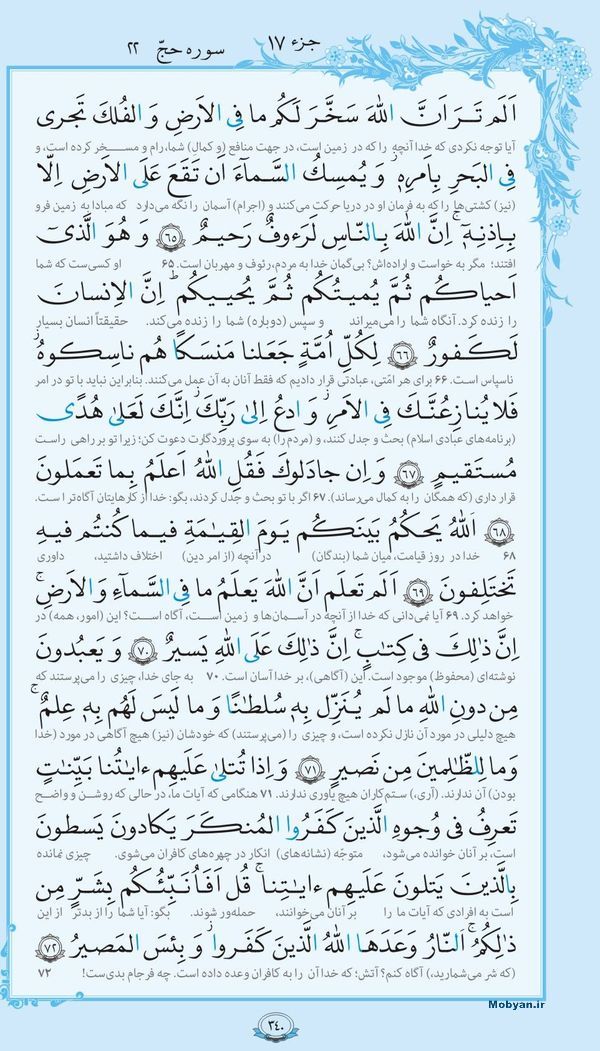 جزء ۱۷
سوره حجّ ۲۲
اَلَم تَرَ اَنَّ اللهَ سَخَّرَ لَكُم ما فِى الاَرضِ وَ الفُلكَ تَجرى
آیا توجه نکردی که خدا آنچه را که در زمین است، در جهت منافع (و کمال) شما، رام و مسخر کرده است، و
فِى البَحرِ بِاَمرِهٖ وَ يُمسِكُ السَّماءَ اَن تَقَعَ عَلَى الاَرضِ اِلّا
(نیز) کشتی‌ها را که به فرمان او در دریا حرکت می‌کنند و (اجرام) آسمان را نگه می‌دارد که مبادا به زمین فرو
بِاِذنِهٖ ۚ اِنَّ اللهَ بِالنّاسِ لَرَءوفٌ رَحيمٌ ﴿٦٥﴾ وَ هُوَ الَّذى
افتند؛ مگر به خواست و اراده‌اش؟ بی‌گمان خدا به مردم، رئوف و مهربان است. ۶۵ او کسی‌ست که شما
اَحياكُم ثُمَّ يُميتُكُم ثُمَّ يُحييكُم ۗ اِنَّ الاِنسانَ
را زنده کرد. آنگاه شما را می‌میراند و سپس (دوباره) شما را زنده می‌کند. حقیقتاً انسان بسیار
لَكَفورٌ ﴿٦٦﴾ لِكُلِّ اُمَّةٍ جَعَلنا مَنسَكًا هُم ناسِكوهُ ۖ
ناسپاس است. ۶۶ برای هر امّتی، عبادتی قرار دادیم که فقط آنان به آن عمل می‌کنند. بنابراین نباید با تو در امر
فَلا يُنازِعُنَّكَ فِى الاَمرِ ۚ وَ ادعُ اِلىٰ رَبِّكَ ۖ اِنَّكَ لَعَلىٰ هُدًى
(برنامه‌های عبادی اسلام) بحث و جدل کنند، و (مردم را) به سوی پروردگارت دعوت کن؛ زیرا تو بر راهی راست
مُستَقيمٍ ﴿٦٧﴾ وَ اِن جادَلوكَ فَقُلِ اللهُ اَعلَمُ بِما تَعمَلونَ
قرار داری (که همگان را به کمال می‌رساند). ۶۷ اگر با تو بحث و جدل کردند، بگو: خدا از کارهایتان آگاه‌تر است.
﴿٦٨﴾ اَللهُ يَحكُمُ بَينَكُم يَومَ القِيٰمَةِ فيما كُنتُم فيهِ
۶۸ خدا در روز قیامت، میان شما (بندگان) در آنچه (از امر دین) اختلاف داشتید، داوری
تَختَلِفونَ ﴿٦٩﴾ اَلَم تَعلَم اَنَّ اللهَ يَعلَمُ ما فِى السَّماءِ وَ الاَرضِ ۗ
خواهد کرد. ۶۹ آیا نمی‌دانی که خدا از آنچه در آسمان‌ها و زمین است، آگاه است؟ این (امور، همه) در
اِنَّ ذٰلِكَ فى كِتٰبٍ ۚ اِنَّ ذٰلِكَ عَلَى اللهِ يَسيرٌ ﴿٧٠﴾ وَ يَعبُدونَ
نوشته‌ای (محفوظ) موجود است. این (آگاهی)، بر خدا آسان است. ۷۰ به جای خدا، چیزی را می‌پرستند که
مِن دونِ اللهِ ما لَم يُنَزِّل بِهٖ سُلطٰنًا وَ ما لَيسَ لَهُم بِهٖ عِلمٌ ۗ
هیچ دلیلی در مورد آن نازل نکرده است، و چیزی را (می‌پرستند) که خودشان (نیز) هیچ آگاهی در مورد (خدا
وَما لِلظّالِمينَ مِن نَصيرٍ ﴿٧١﴾ وَ اِذا تُتلىٰ عَلَيهِم ءاياتُنا بَيِّنٰتٍ
بودن) آن ندارند. (آری،) ستم‌کاران هیچ یاوری ندارند. ۷۱ هنگامی که آیات ما، در حالی که روشن و واضح
تَعرِفُ فى وُجوهِ الَّذينَ كَفَرُوا المُنكَرَ ۖ يَكادونَ يَسطونَ
است، بر آنان خوانده می‌شود، متوجّه (نشانه‌های) انکار در چهره‌های کافران می‌شوی. چیزی نمانده
بِالَّذينَ يَتلونَ عَلَيهِم ءاياتِنا ۗ قُل اَفَاُنَبِّئُكُم بِشَرٍّ مِن
است به افرادی که آیات ما را بر آنان می‌خوانند، حمله‌ور شوند. بگو: آیا شما را از بدتر از این
ذٰلِكُمُ ۗ النّارُ وَعَدَهَا اللهُ الَّذينَ كَفَروا ۖ وَ بِئسَ المَصيرُ ﴿٧٢﴾
(که شر می‌شمارید،) آگاه کنم؟ آتش؛ که خدا آن را به کافران وعده داده است. چه فرجام بدی‌ست! ۷۲
Mobyan.ir
۳۴۰